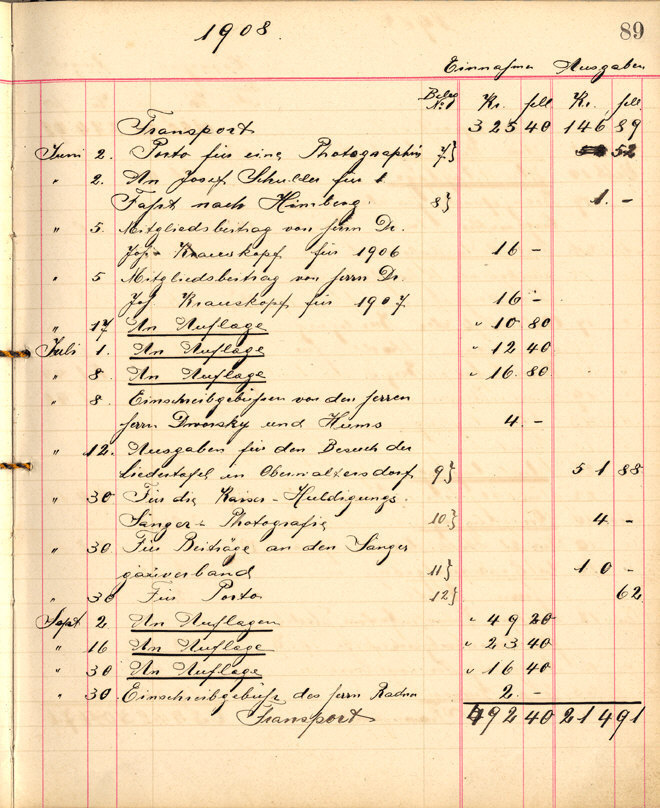 1908.
89
Einnahmen Ausgaben
Beleg No. Kr. hll Kr. hll.
Transport 325 40 146 89
Juni 2. Porto für eine Photographie 7} 52
" 2. An Josef Schuller für 1
Fahrt nach Himberg. 8} 1. –
" 5. Mitgliedsbeitrag von Herrn Dr.
Jos. Krauskopf für 1906 16 –
" 5 Mitgliedsbeitrag von Herrn Dr.
Jos. Krauskopf für 1907. 16 –
" 17 An Auflage " 10 80
Juli 1. An Auflage " 12 40
" 8 An Auflage " 16 80
" 8. Einschreibgebühren von den Herren
Herrn Dworsky und Hums 4. –
" 12. Ausgaben für den Besuch der
Liedertafel in Oberwaltersdorf 9} 51 88
" 30 Für die Kaiser-Huldigungs-
Sänger-Photografie 10} 4 –
" 30 Für Beiträge an den Sänger
gauverband 11} 10 –
" 30 Für Porto 12} 62
Sept. 2 An Auflagen " 49 20
" 16 An Auflage " 23 40
" 30 An Auflage " 16 40
" 30. Einschreibgebühr des Herrn 2. –
Transport 492 40 214 91